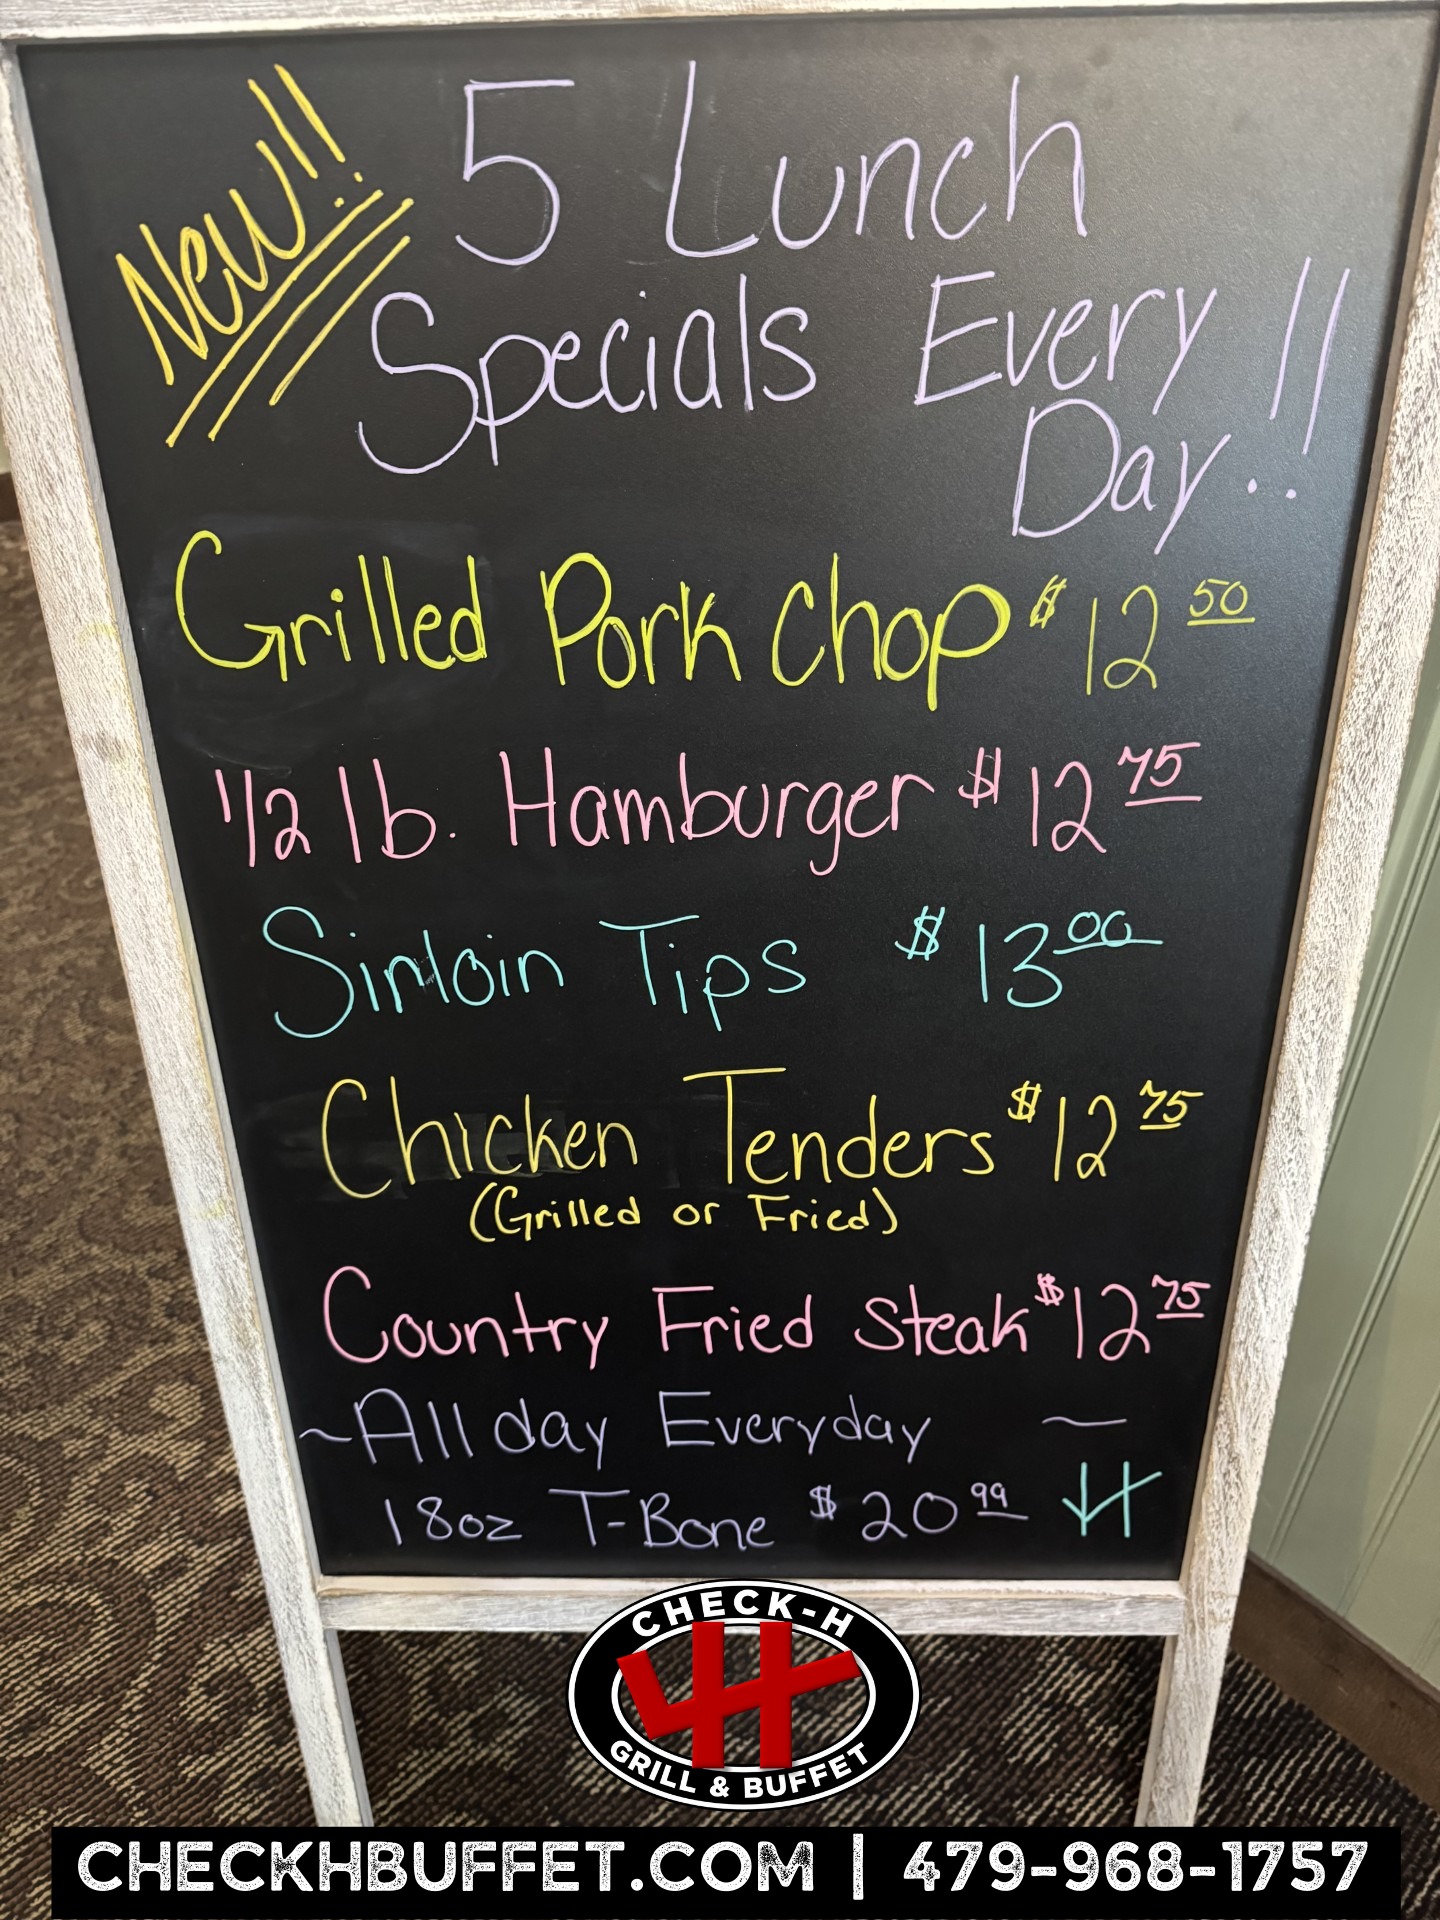 New!!
5 Lunch
Specials Every
Day..!!
Grilled Pork Chop $12 50
1/2 lb. Hamburger $12 75
Sirloin Tips $13 00
Chicken Tenders $12 75
(Grilled or Fried)
Country Fried Steak $12 75
~All day Everyday ~
18oz T-Bone $20 99
CHECK-H
GRILL & BUFFET
CHECKHBUFFET.COM | 479-968-1757